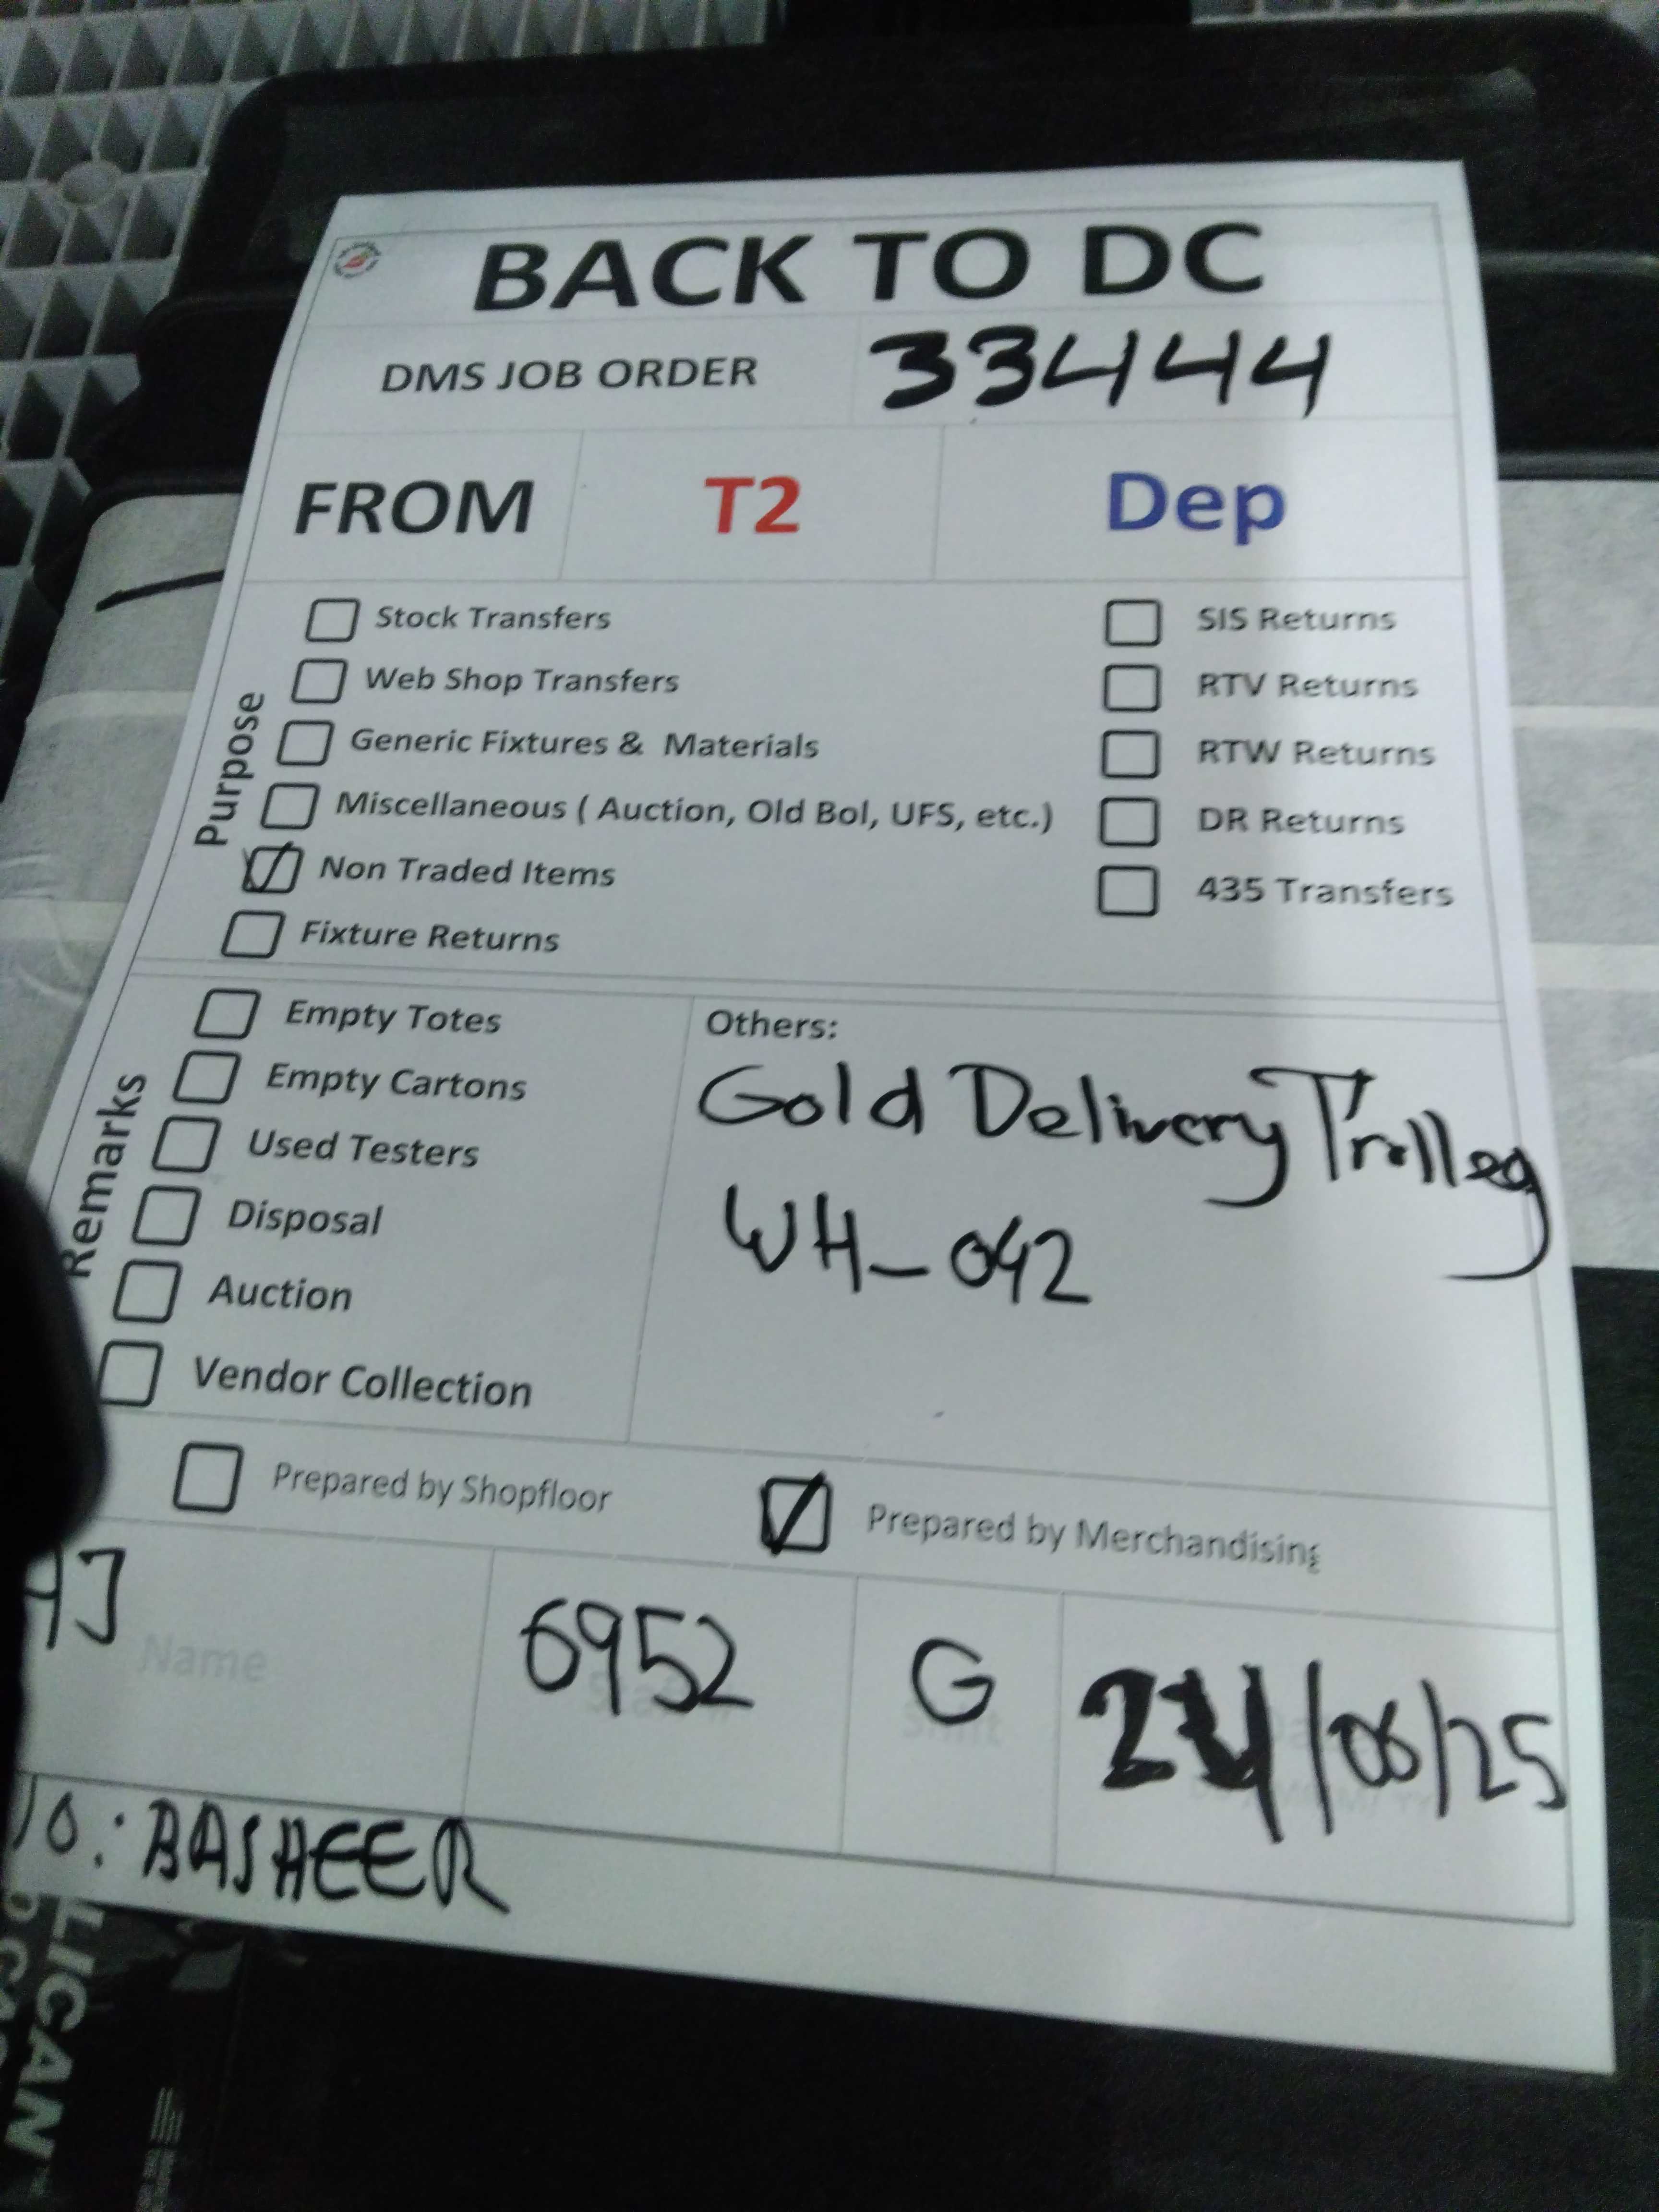 BACK TO DC
DMS JOB ORDER 33444
FROM T2 Dep
Purpose
Stock Transfers
Web Shop Transfers
Generic Fixtures & Materials
Miscellaneous ( Auction, Old Bol, UFS, etc.)
Non Traded Items
Fixture Returns
SIS Returns
RTV Returns
RTW Returns
DR Returns
435 Transfers
Remarks
Empty Totes
Empty Cartons
Used Testers
Disposal
Auction
Vendor Collection
Others:
Gold Delivery Trolley
WH-042
Prepared by Shopfloor
Prepared by Merchandising
AJ 6952 G 24/06/25
Name Shift
: BASHEER
LICAN